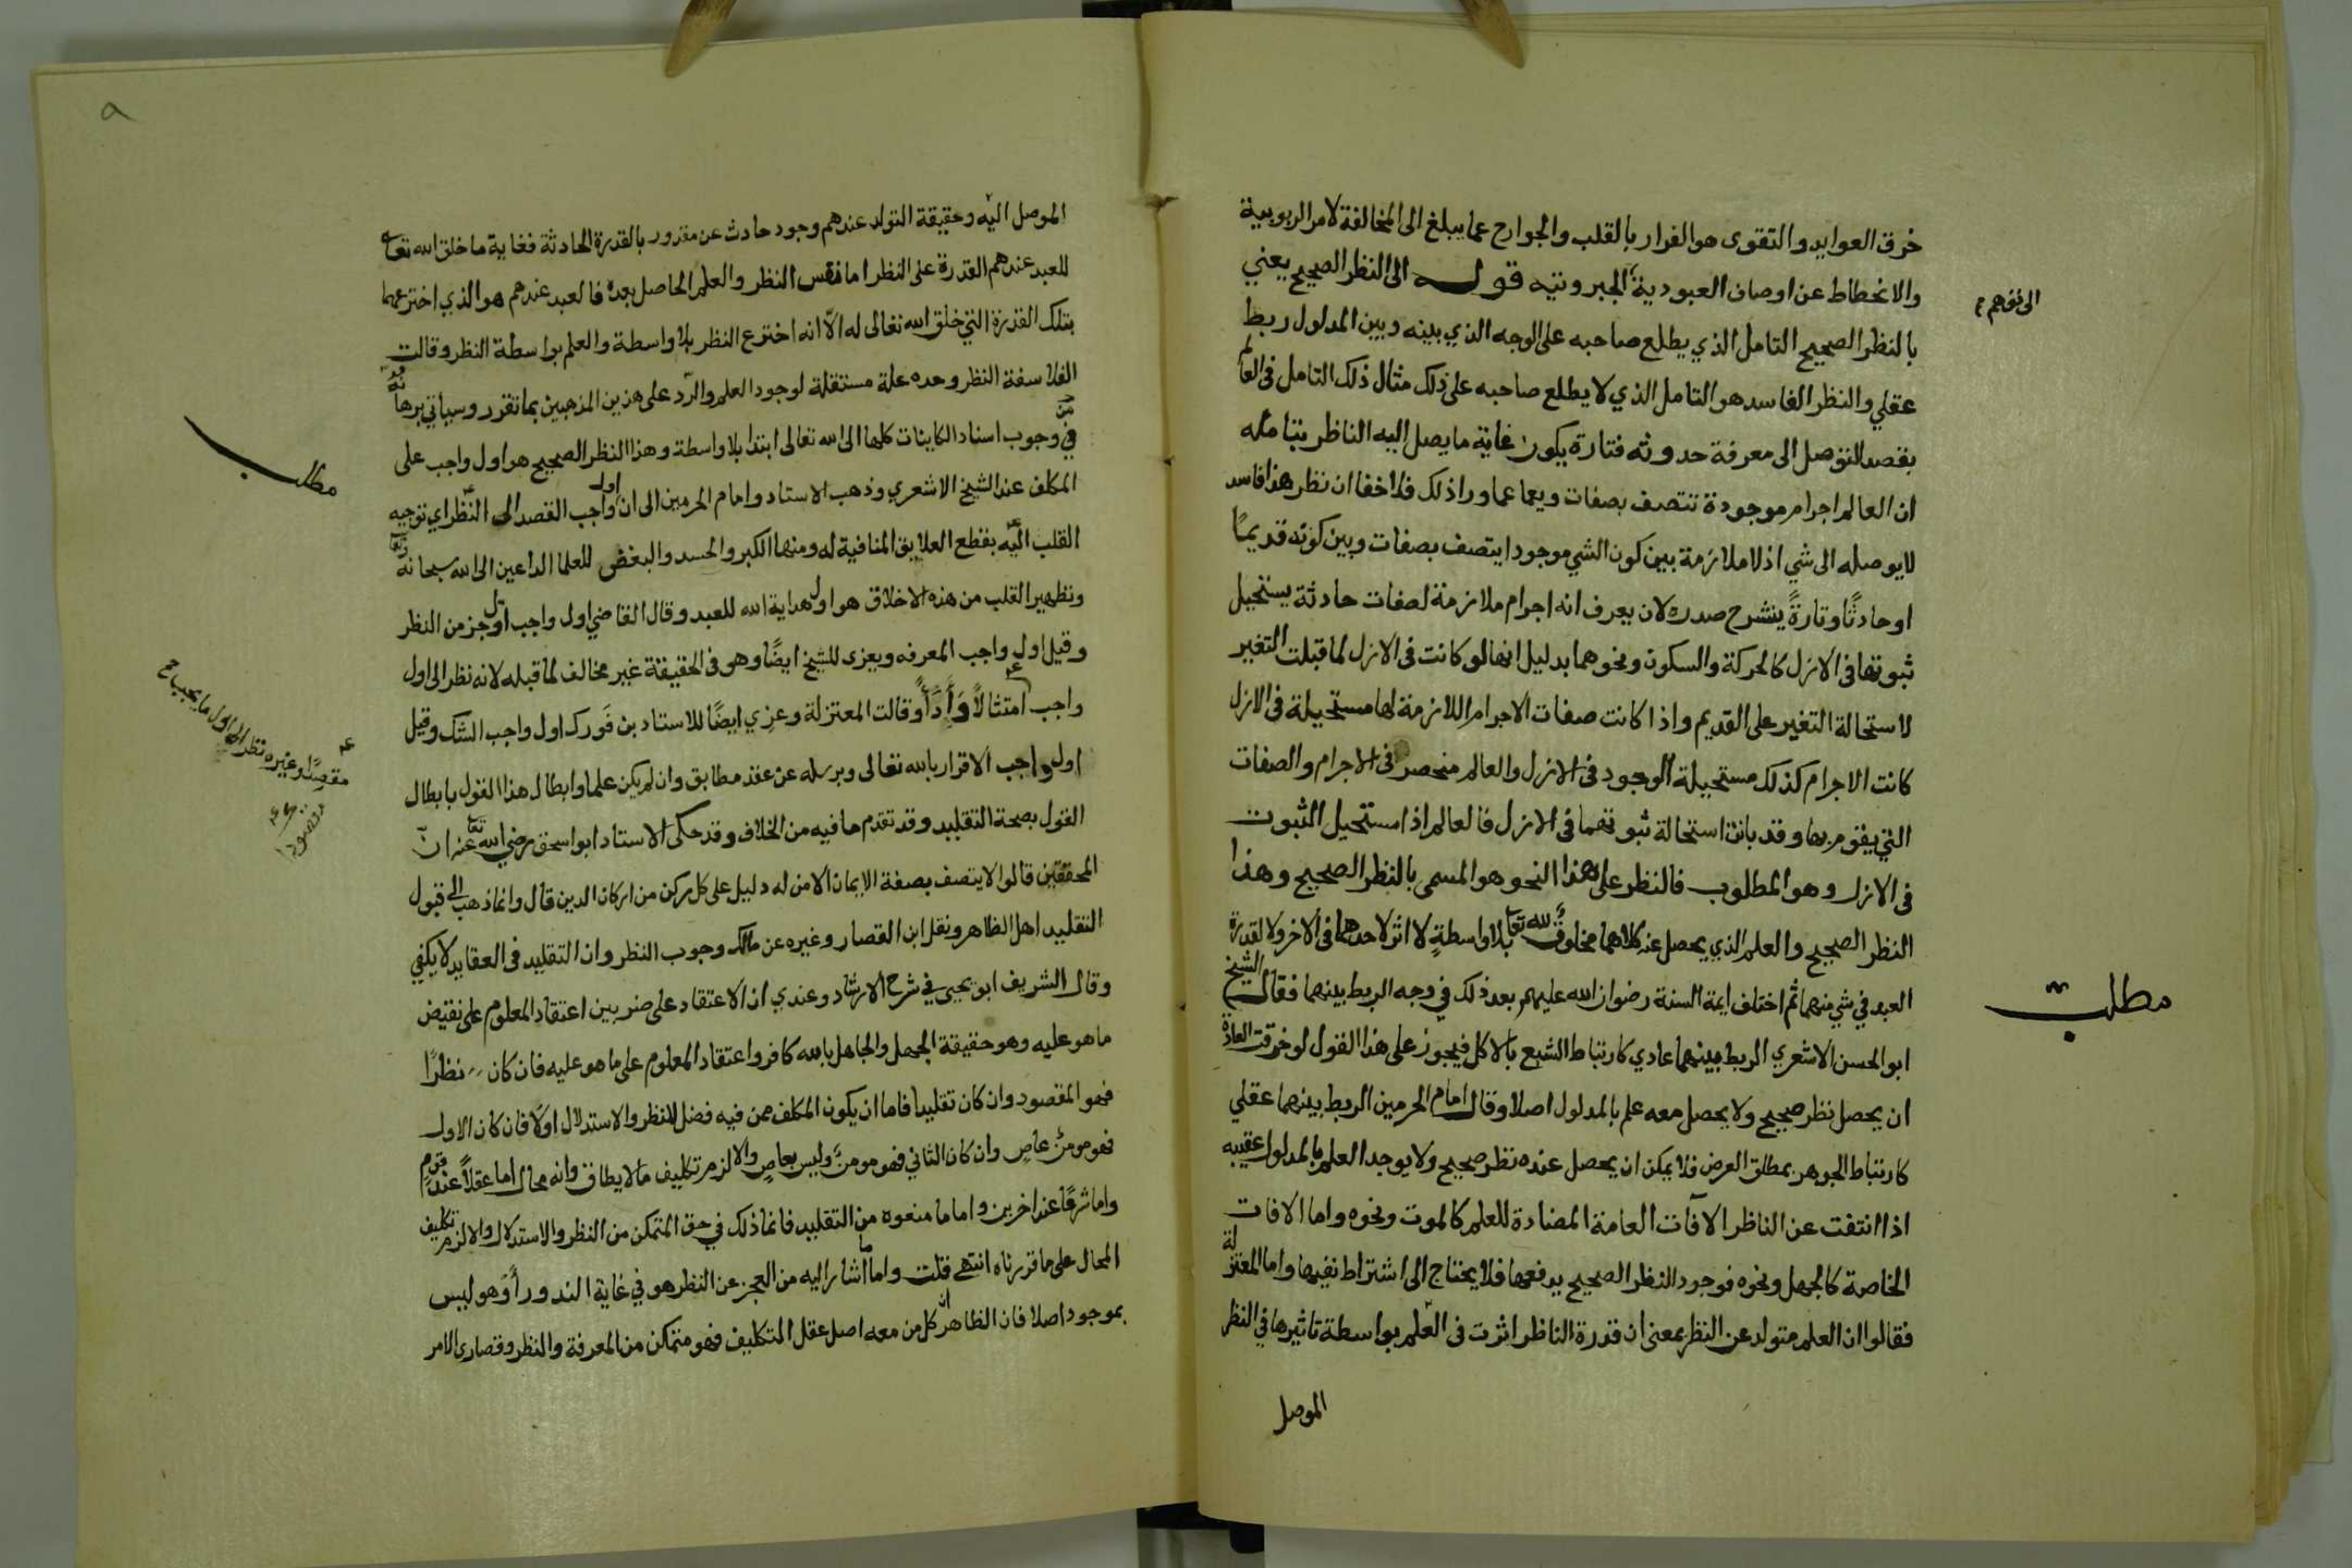 خرق العوايد والتقوى هو الفرار بالقلب والجوارح عما يبلغ الى المخالفة لامر الربوبية
والانحطاط عن اوصاف العبودية الجبروتيه قوله الى النظر الصحيح يعني
بالنظر الصحيح التامل الذي يطلع صاحبه على الوجه الذي بينه وبين المدلول ربط
عقلي والنظر الفاسد هو التامل الذي لا يطلع صاحبه على ذلك مثال ذلك التامل في العالم
بقصد التوصل الى معرفة حدوثه فتارة يكون غاية ما يصل اليه الناظر بتامله
ان العالم اجرام موجودة تتصف بصفات ويعما عما وراذلك فلا خفا ان نظر هذا فاسد
لا يوصله الى شي اذ لا ملازمة بين كون الشي موجودا يتصف بصفات وبين كونه قديمًا
او حادثًا وتارةً ينشرح صدره لان يعرف انه اجرام ملازمة لصفات حادثة يستحيل
ثبوتها في الازل كالحركة والسكون ونحوهما بدليل انها لو كانت في الازل لما قبلت التغير
لاستحالة التغير على القديم واذا كانت صفات الاجرام اللازمة لها مستحيلة في الازل
كانت الاجرام كذلك مستحيلة الوجود في الازل والعالم منحصر في الاجرام والصفات
التي يقوم بها وقد بانت استحالة ثبوتهما في الازل فالعالم اذا مستحيل الثبوت
في الازل وهو المطلوب فالنظر على هذا النحو هو المسمى بالنظر الصحيح وهذا
النظر الصحيح والعلم الذي يحصل عنه كلاهما مخلوق لله تعا بلا واسطةٍ لا اثر لاحدهما في الاخر ولا لقدرة
العبد في شي منهما ثم اختلف ايمة السنة رضوان الله عليهم بعد ذلك في وجه الربط بينهما فقال الشيخ
ابو الحسن الاشعري الربط بينهما عادي كارتباط الشبع بالاكل فيجوز على هذا القول لو خرقت العادة
ان يحصل نظر صحيح ولا يحصل معه علم بالمدلول اصلا وقال امام الحرمين الربط بينهما عقلي
كارتباط الجوهر بمطلق العرض فلا يمكن ان يحصل عنده نظر صحيح ولا يوجد العلم بالمدلول عقيبه
اذا انتفت عن الناظر الآفات العامة المضادة للعلم كالموت ونحوه واما الافات
الخاصة كالجهل ونحوه فوجود النظر الصحيح يدفعها فلا يحتاج الى اشتراط نفيها واما المعتزلة
فقالوا ان العلم متولد عن النظر بمعنى ان قدرة الناظر اثرت في العلم بواسطة تاثيرها في النظر
الموصل
مطلب
الموصل اليه وحقيقة التولد عندهم وجود حادث عن مقدور بالقدرة الحادثة فغاية ما خلق الله تعا
للعبد عندهم القدرة على النظر اما نفس النظر والعلم الحاصل بعده فالعبد عندهم هو الذي اخترعهما
بتلك القدرة التي خلق الله تعالى له الا انه اخترع النظر بلا واسطة والعلم بواسطة النظر وقالت
الفلاسفة النظر وحده علة مستقلة لوجود العلم والرد على هذين المذهبين بما تقرر وسياتي برهانه
في وجوب اسناد الكاينات كلها الى الله تعالى ابتدا بلا واسطة وهذا النظر الصحيح هو اول واجب على
المكلف عند الشيخ الاشعري وذهب الاستاد وامام الحرمين الى ان اول واجب القصد الى النظر اي توجيه
القلب اليه بقطع العلايق المنافية له ومنها الكبر والحسد والبغض للعلما الداعين الى الله سبحانه وتعا
وتطهير القلب من هذه الاخلاق هو اول هداية الله للعبد وقال القاضي اول واجب اول جز من النظر
وقيل اول واجب المعرفه ويعزى للشيخ ايضًا وهو في الحقيقة غير مخالف لما قبله لانه نظر الى اول
واجب امتثالًا وادًا وقالت المعتزلة وعزي ايضًا للاستاد بن فورك اول واجب الشك وقيل
اول واجب الاقرار بالله تعالى وبرسله عن عقد مطابق وان لم يكن علما وابطال هذا القول بابطال
القول بصحة التقليد وقد تقدم ما فيه من الخلاف وقد حكى الاستاد ابو اسحق رضي الله تعا عنه ان
المحققين قالوا لا يتصف بصفة الايمان الا من له دليل على كل ركن من اركان الدين قال وانما ذهب الى قبول
التقليد اهل الظاهر ونقل ابن القصار وغيره عن مالك وجوب النظر وان التقليد في العقايد لا يكفي
وقال الشريف ابو يحيى في شرح الارشاد وعندي ان الاعتقاد على ضربين اعتقاد المعلوم على نقيض
ما هو عليه وهو حقيقة الجهل والجاهل بالله كافر واعتقاد المعلوم على ما هو عليه فان كان نظرًا
فهو المقصود وان كان تقليدا فاما ان يكون المكلف ممن فيه فضل للنظر والاستدلال اولا فان كان الاول
فهو مومن عاصٍ وان كان الثاني فهو مومن وليس بعاصٍ والا لزم تكليف مالا يطاق وانه محال اما عقلًا عند قوم
واما شرعًا عند اخرين واما ما منعوه من التقليد فانما ذلك في حق المتمكن من النظر والاستدلال والا لزم تكليف
المحال على ما قررناه انتهى قلت واما ما اشار اليه من العجز عن النظر هو في غاية الندور او هو ليس
بموجود اصلا فان الظاهر ان كل من معه اصل عقل التكليف فهو متمكن من المعرفة والنظر وقصارى الامر
مطلب